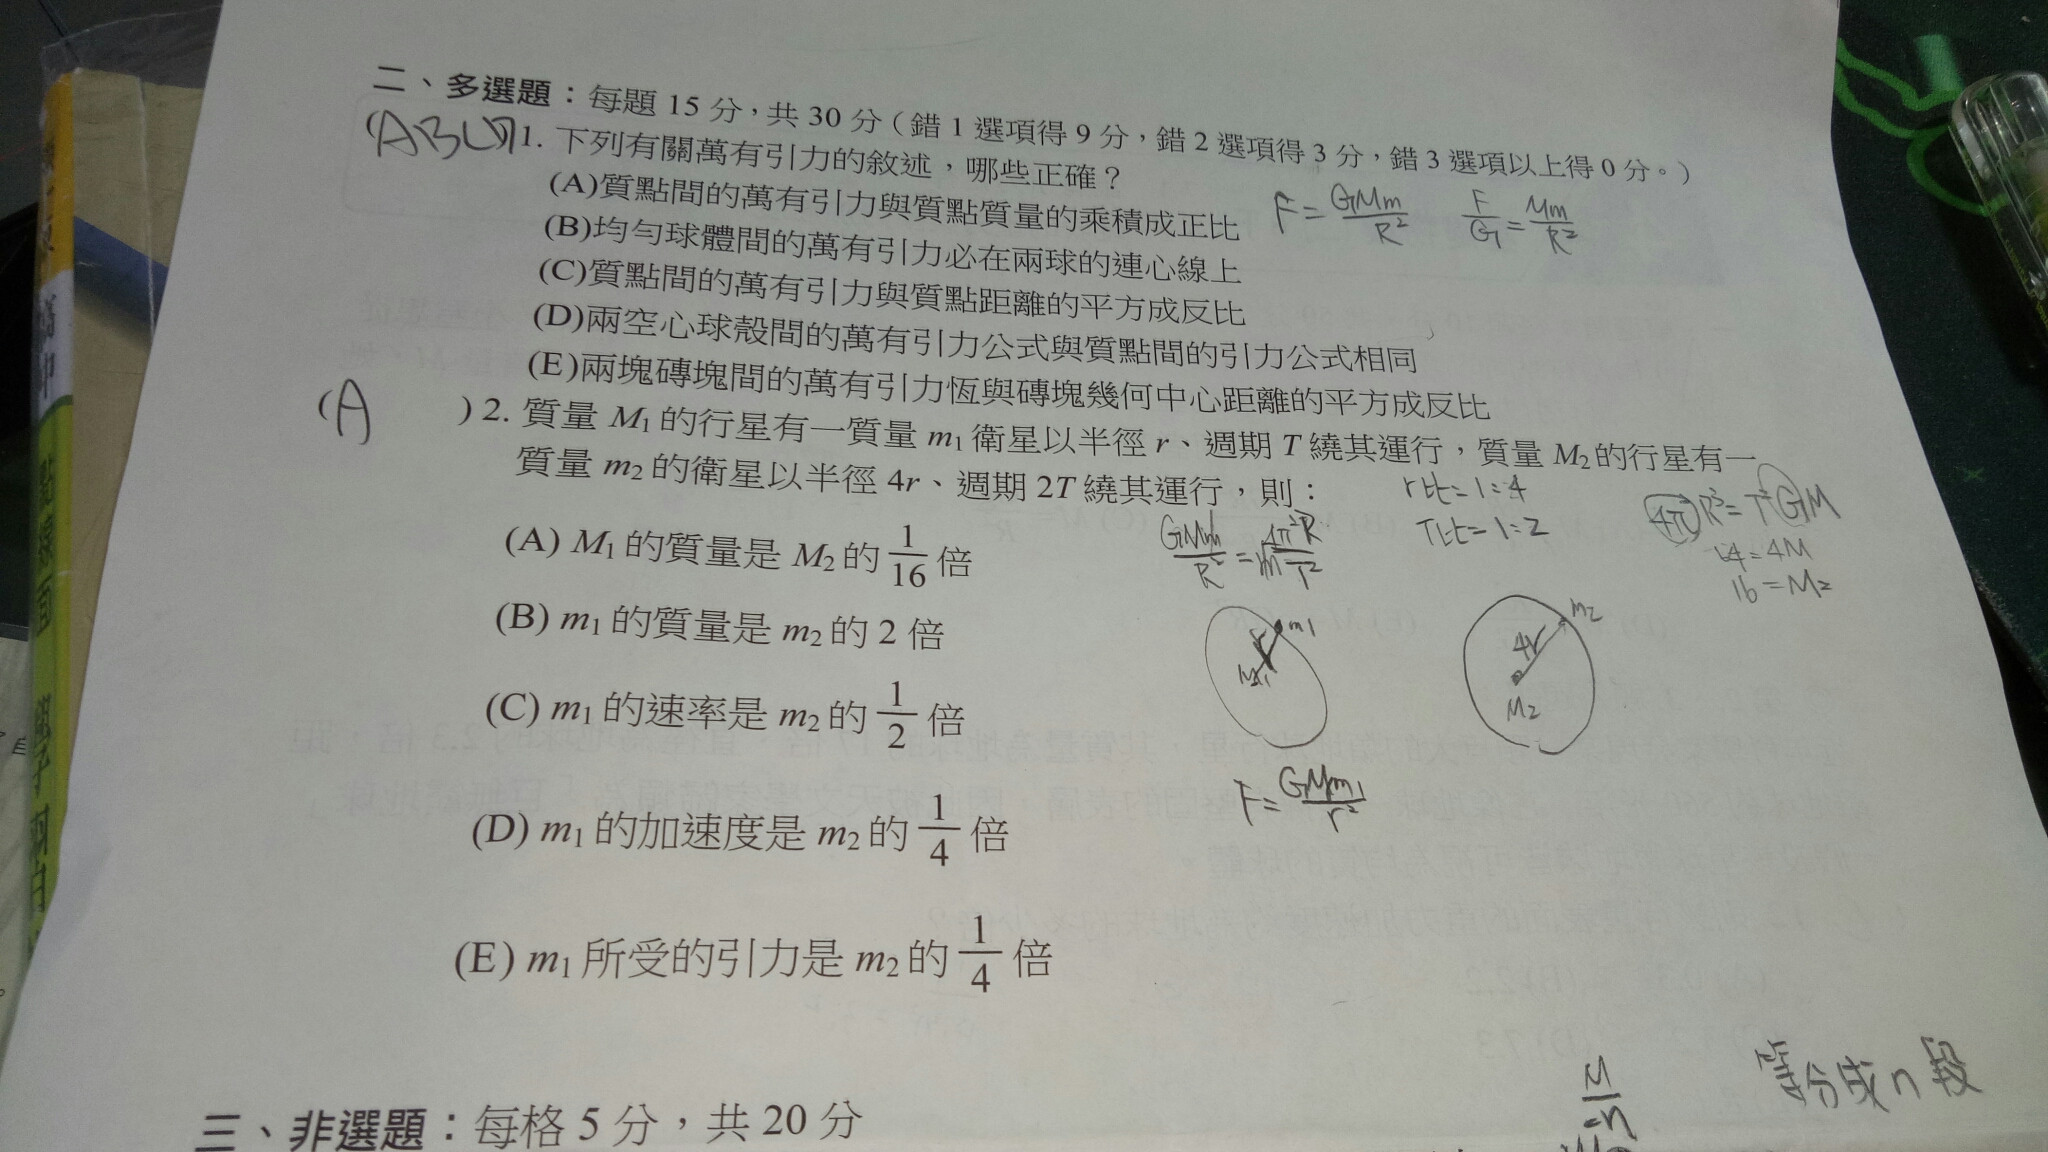 二、多選題：每題 15 分，共 30 分（錯 1 選項得 9 分，錯 2 選項得 3 分，錯 3 選項以上得 0 分。）
(ABCD)1. 下列有關萬有引力的敘述，哪些正確？
(A)質點間的萬有引力與質點質量的乘積成正比
F=GMm/R² F/G=Mm/R²
(B)均勻球體間的萬有引力必在兩球的連心線上
(C)質點間的萬有引力與質點距離的平方成反比
(D)兩空心球殼間的萬有引力公式與質點間的引力公式相同
(E)兩塊磚塊間的萬有引力恆與磚塊幾何中心距離的平方成反比
(A )2. 質量 M₁ 的行星有一質量 m₁ 衛星以半徑 r、週期 T 繞其運行，質量 M₂ 的行星有一
質量 m₂ 的衛星以半徑 4r、週期 2T 繞其運行，則：
r比=1:4
T比=1:2
R³=T²GM
=4M
16=M₂
(A) M₁ 的質量是 M₂ 的 1/16 倍
(B) m₁ 的質量是 m₂ 的 2 倍
m1
r
M₁
m2
4r
M2
(C) m₁ 的速率是 m₂ 的 1/2 倍
F=GMm₁/r²
(D) m₁ 的加速度是 m₂ 的 1/4 倍
(E) m₁ 所受的引力是 m₂ 的 1/4 倍
等分成n段
三、非選題：每格 5 分，共 20 分